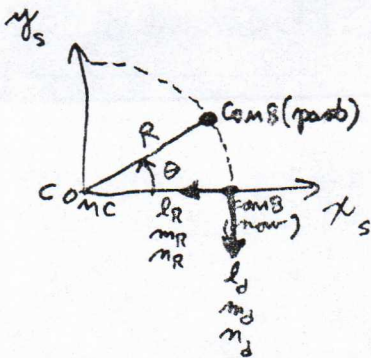 y_s
COM8 (past)
R
θ
COMC
x_s
l_R
m_R
n_R
COM8
(now)
l_d
m_d
n_d